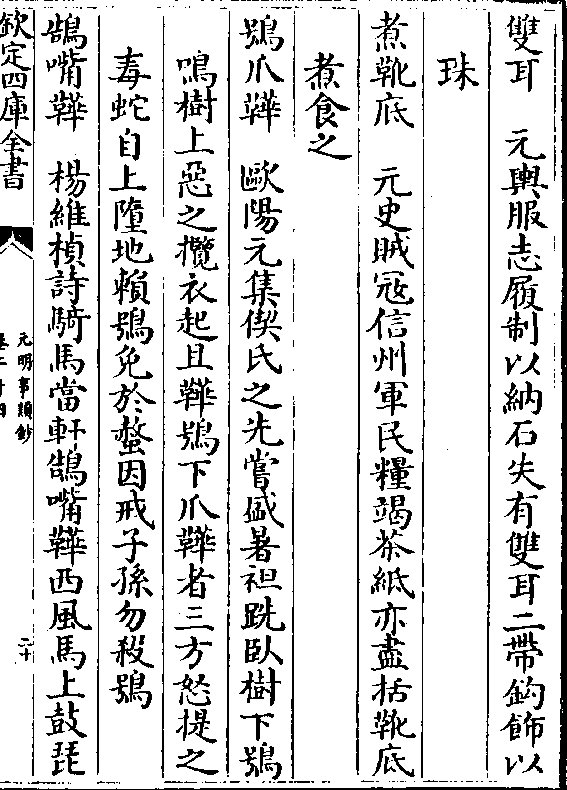 雙耳　元輿服志履制以納石失有雙耳二帶鈎飾以
珠
煮靴底　元史賊冦信州軍民糧竭茶紙亦盡括靴底
煮食之
鴞爪鞾　歐陽元集偰氏之先嘗盛暑袒跣臥樹下鴞
鳴樹上惡之攬衣起且鞾鴞下爪鞾者三方怒提之
毒蛇自上墮地賴鴞免於螫因戒子孫勿殺鴞
鵠嘴鞾　楊維楨詩騎馬當軒鵠嘴鞾西風馬上鼓琵
欽定四庫全書
元明事類鈔
卷二十四
二十